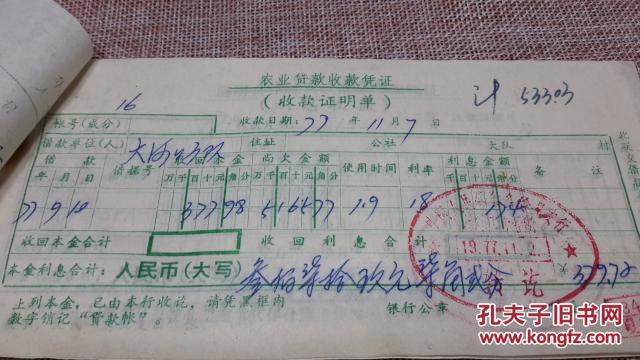 农业贷款收款凭证
计 533.03
16
(收款证明单)
帐号(成分) 收款日期: 77 年 11 月 7 日
借款单位(人) 住址 公社 大队 村
借款 借据号 收回本金 尚欠金额 使用时间 利率 利息金额 备注
年 月 日 万 千 百 十 元 角 分 万 千 百 十 元 角 分 万 千 百 十 元 角 分
77 9 10 377 98 5165 77 1.9 1.8 1 74
收回本金合计 收回利息合计
19.77.11.
本金利息合计: 人民币(大写) 叁佰柒拾玖元柒角贰分 379.72
讫
上列本金,已由本行收讫,请凭黑框内
数字销记“贷款帐”。 银行公章
孔夫子旧书网
www.kongfz.com